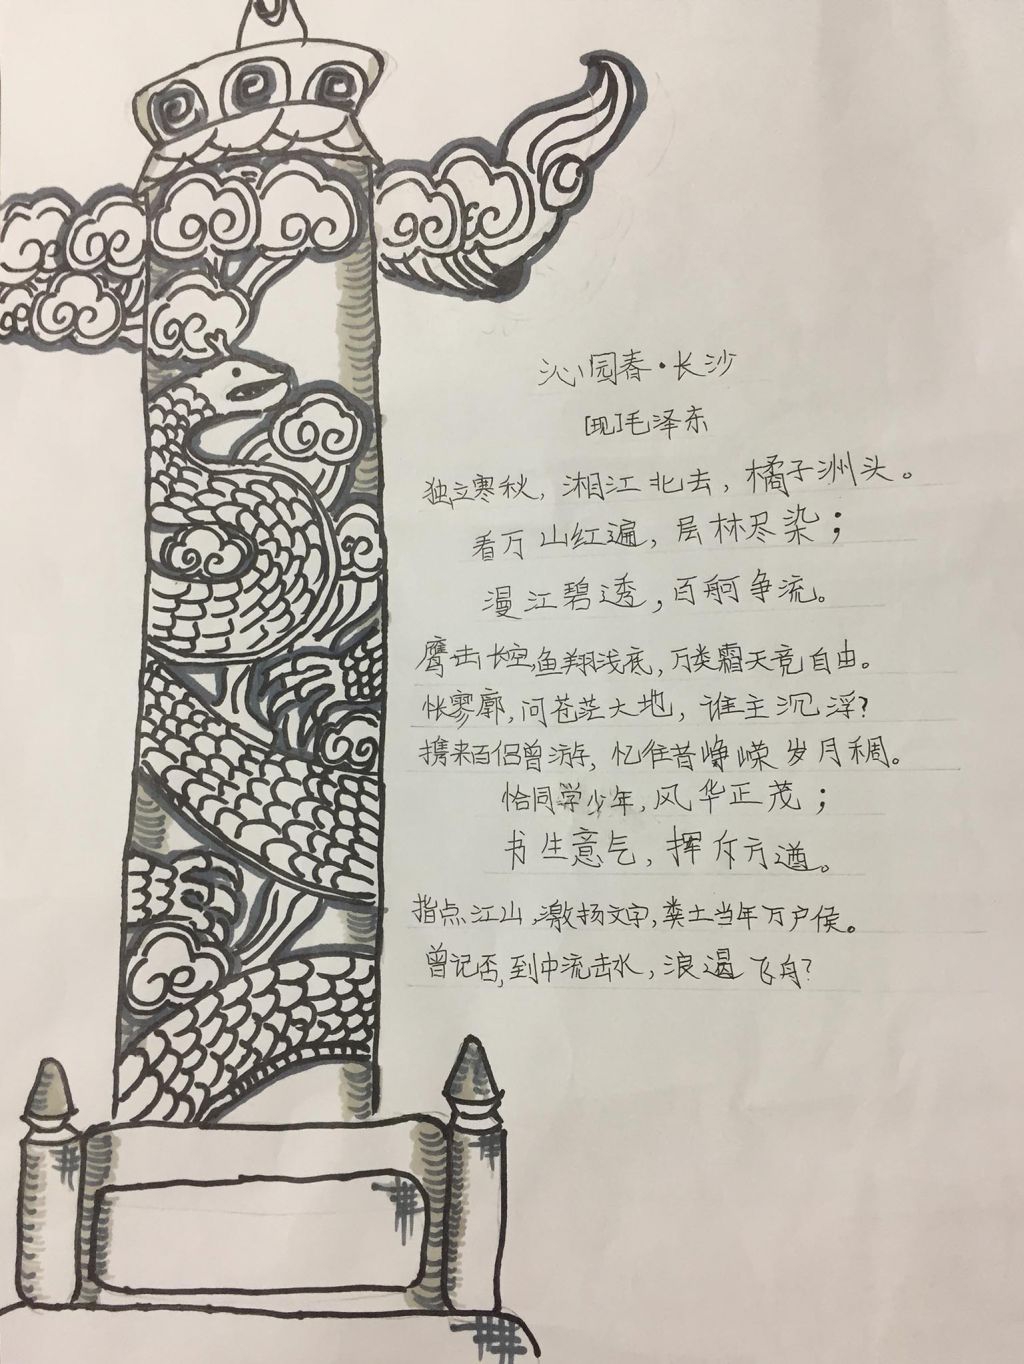 沁园春·长沙
[现]毛泽东
独立寒秋，湘江北去，橘子洲头。
看万山红遍，层林尽染；
漫江碧透，百舸争流。
鹰击长空,鱼翔浅底，万类霜天竞自由。
怅寥廓，问苍茫大地，谁主沉浮？
携来百侣曾游，忆往昔峥嵘岁月稠。
恰同学少年，风华正茂；
书生意气，挥斥方遒。
指点江山，激扬文字，粪土当年万户侯。
曾记否，到中流击水，浪遏飞舟？